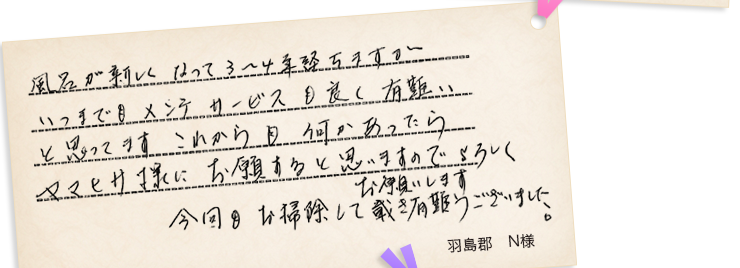 風呂が新しくなって3〜4年経ちますが
いつまでもメンテサービスも良く有難い
と思ってます これからも何かあったら
ヤマヒサ様にお願すると思いますのでよろしく
お願いします
今回もお掃除して戴き有難うございました。
羽島郡　N様